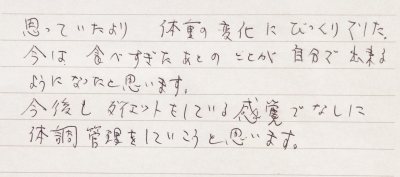 思っていたより 体重の変化にびっくりでした。
今は 食べすぎたあとのことが 自分で出来る
ようになったと思います。
今後も ダイエットをしている感覚でなしに
体調管理をしていこうと思います。